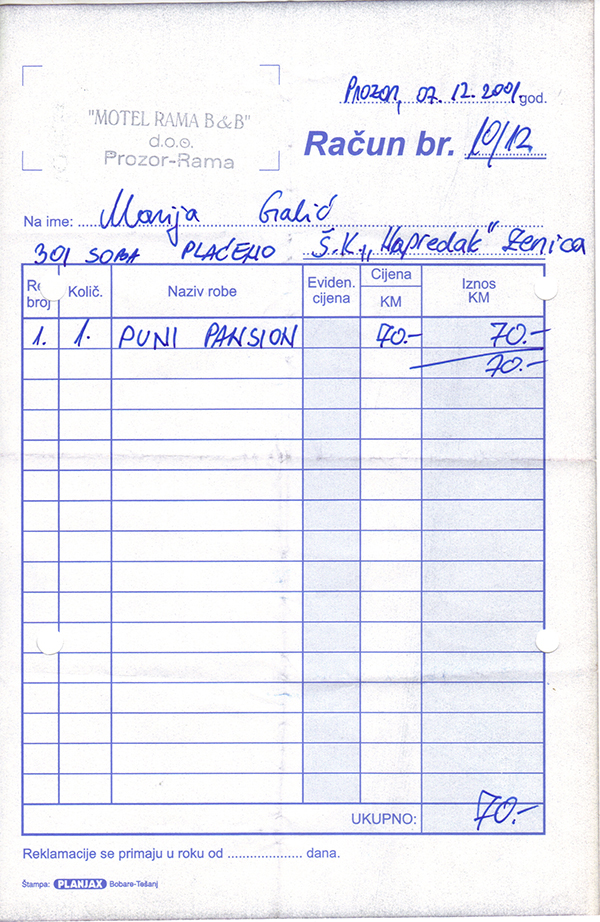 Prozor, 07. 12. 2001. god.
"MOTEL RAMA B&B"
d.o.o.
Prozor-Rama
Račun br. 10/12
Na ime: Marija Galić
301 SOBA PLAĆENO Š.K. „Napredak" Zenica
Red. broj Količ. Naziv robe Eviden. cijena Cijena KM Iznos KM
1. 1. PUNI PANSION 70.- 70.-
70.-
UKUPNO: 70.-
Reklamacije se primaju u roku od .................... dana.
Štampa: PLANJAX Bobare-Tešanj